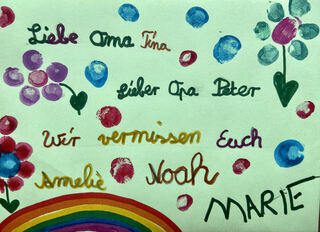 Liebe Oma Tina
Lieber Opa Peter
Wir vermissen Euch
Amelie Noah MARIE